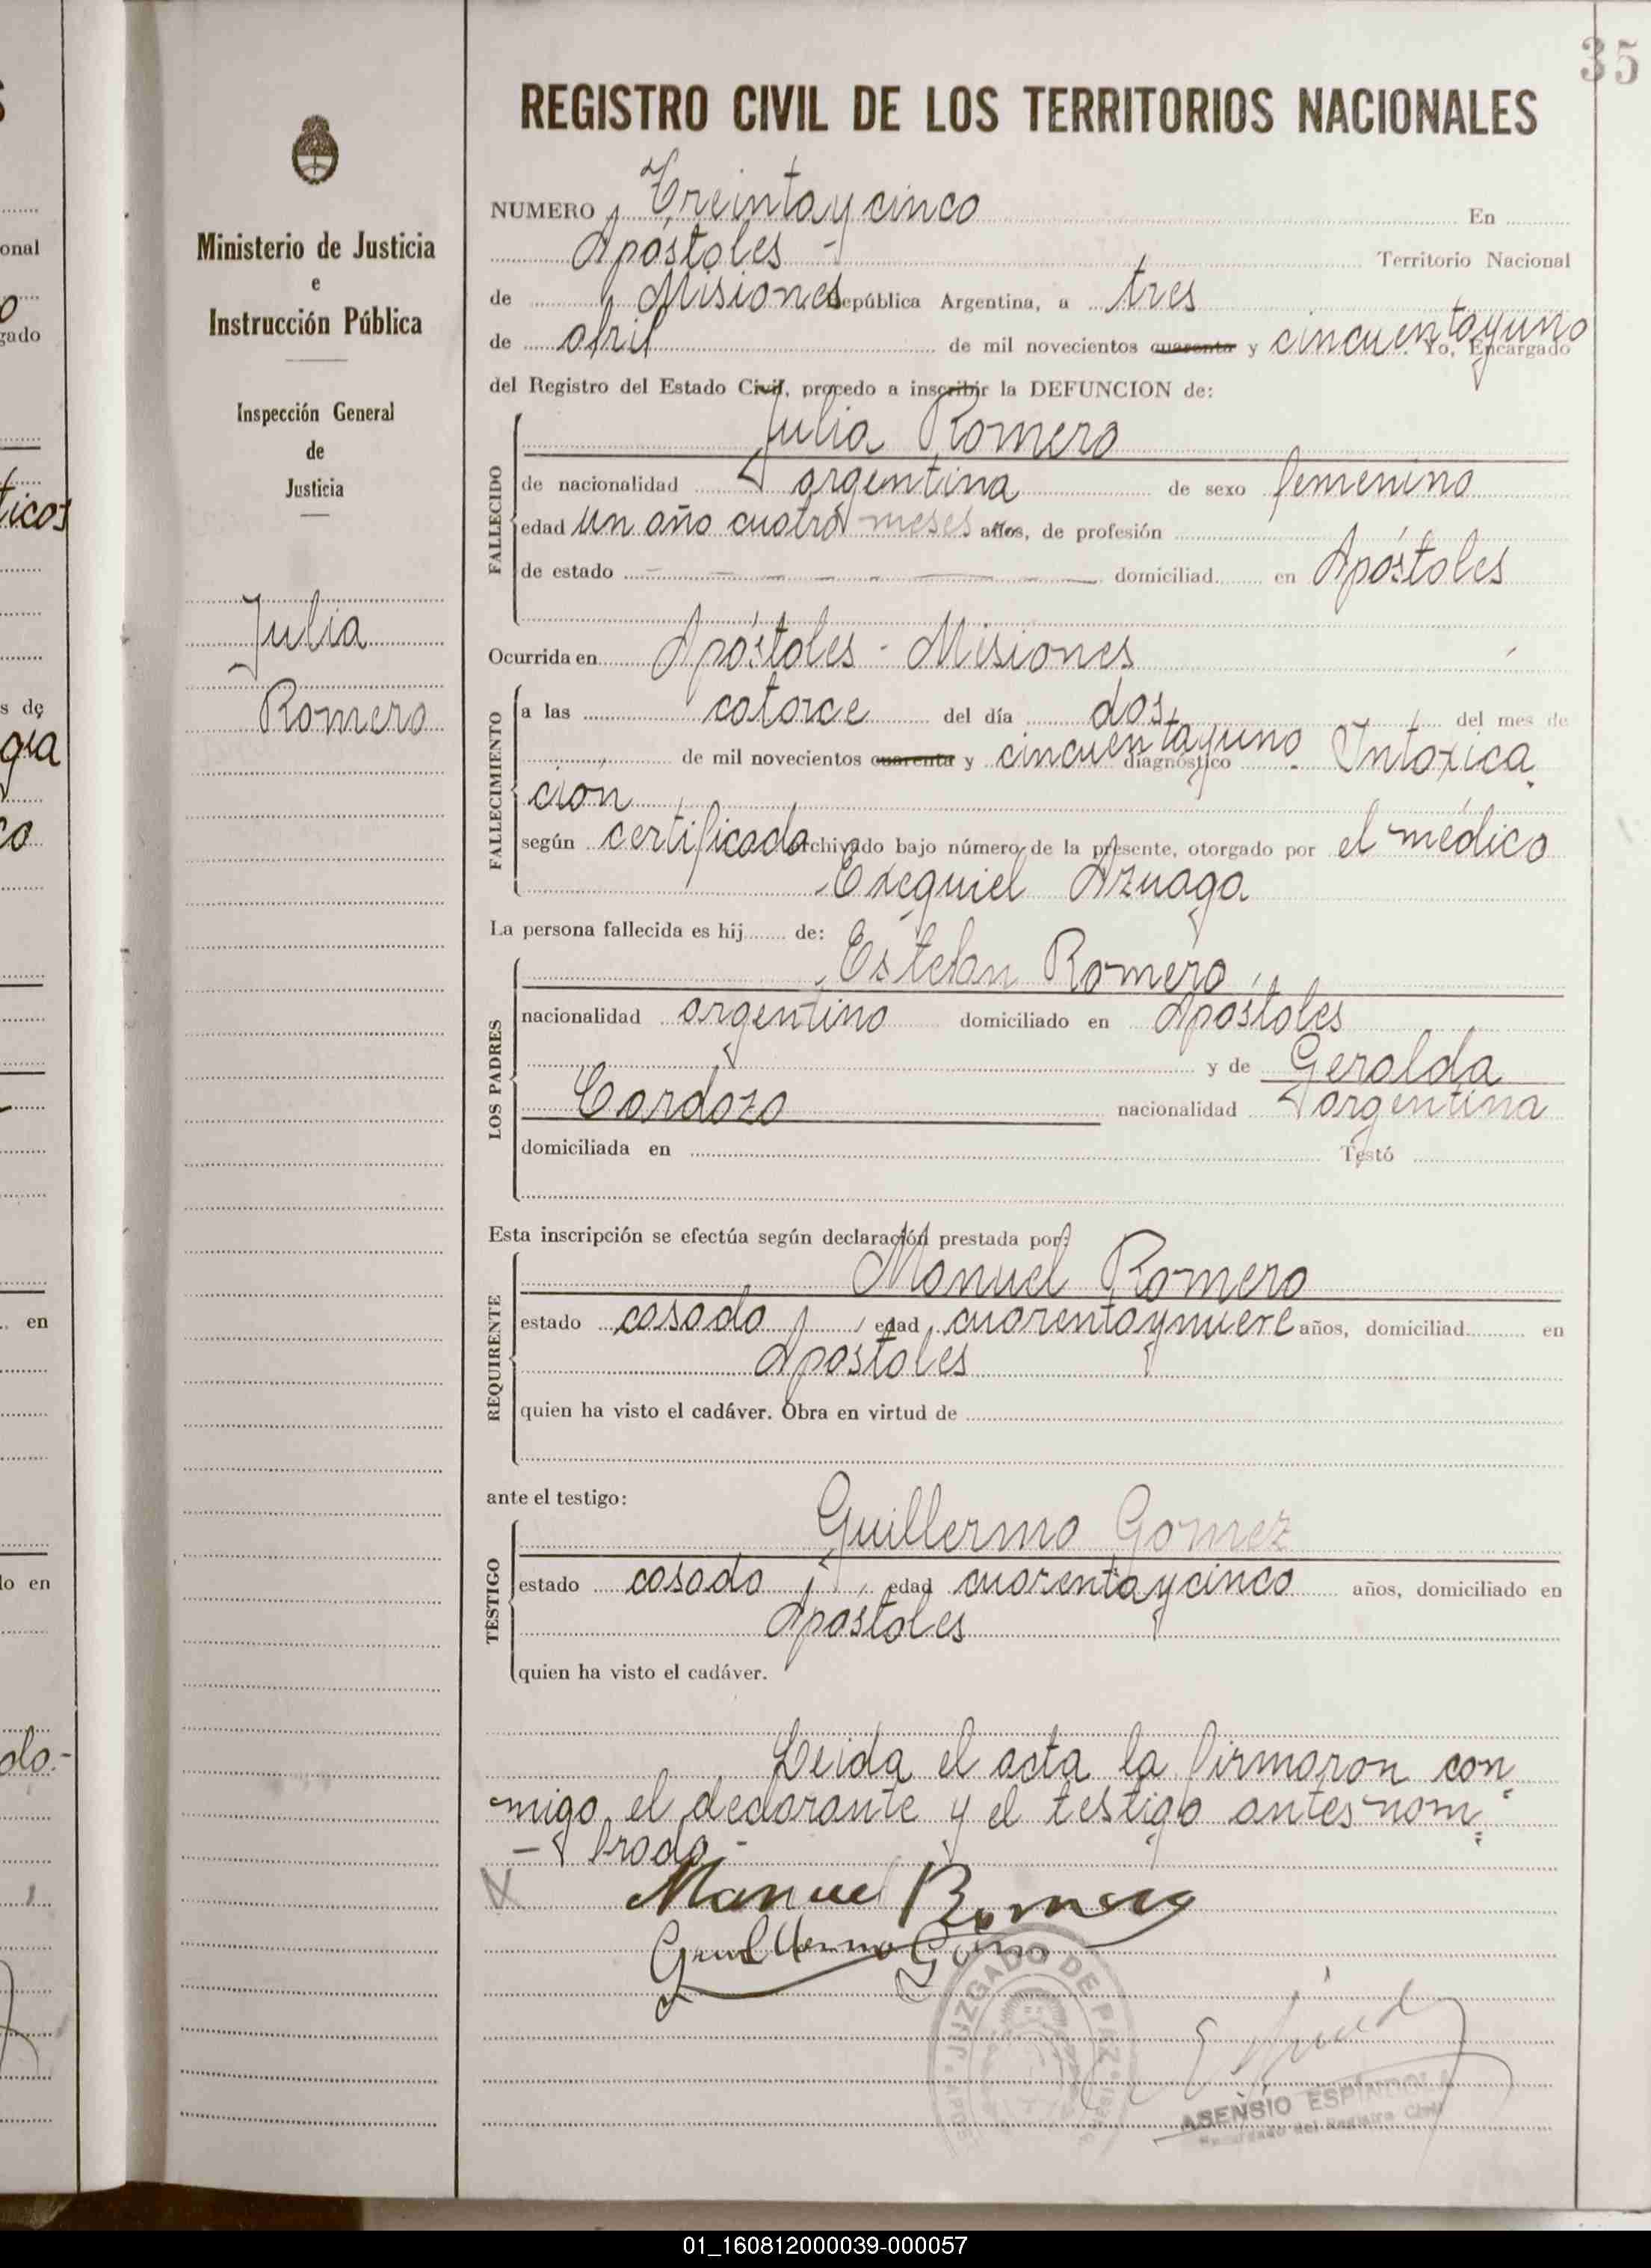 35
REGISTRO CIVIL DE LOS TERRITORIOS NACIONALES
Ministerio de Justicia
e
Instrucción Pública
Inspección General
de
Justicia
Julia
Romero
NUMERO Treinta y cinco En
Apóstoles - Territorio Nacional
de Misiones República Argentina, a tres
de abril de mil novecientos cuarenta y cincuenta y uno Yo, Encargado
del Registro del Estado Civil, procedo a inscribir la DEFUNCION de:
FALLECIDO
Julia Romero
de nacionalidad argentina de sexo femenino
edad un año cuatro meses años, de profesión
de estado domiciliad en Apóstoles
Ocurrida en Apóstoles - Misiones
FALLECIMIENTO
a las catorce del día dos del mes de
de mil novecientos cuarenta y cincuenta y uno diagnóstico Intoxica
ción
según certificado archivado bajo número de la presente, otorgado por el médico
Exequiel Aznaga
La persona fallecida es hij de:
LOS PADRES
Esteban Romero
nacionalidad argentino domiciliado en Apóstoles
y de Geralda
Cardozo nacionalidad argentina
domiciliada en Testó
Esta inscripción se efectúa según declaración prestada por:
REQUIRENTE
Manuel Romero
estado casado edad cuarenta y nueve años, domiciliad en
Apostoles
quien ha visto el cadáver. Obra en virtud de
ante el testigo:
TESTIGO
Guillermo Gomez
estado casado edad cuarenta y cinco años, domiciliado en
Apostoles
quien ha visto el cadáver.
Leida el acta la firmaron con
migo el declarante y el testigo antes nom
brado -
Manuel Romero
Guillermo
JUZGADO DE PAZ
ASENSIO ESPINDOLA
Encargado del Registro Civil
onal
gado
ticos
s de
en
do en
01_160812000039-000057